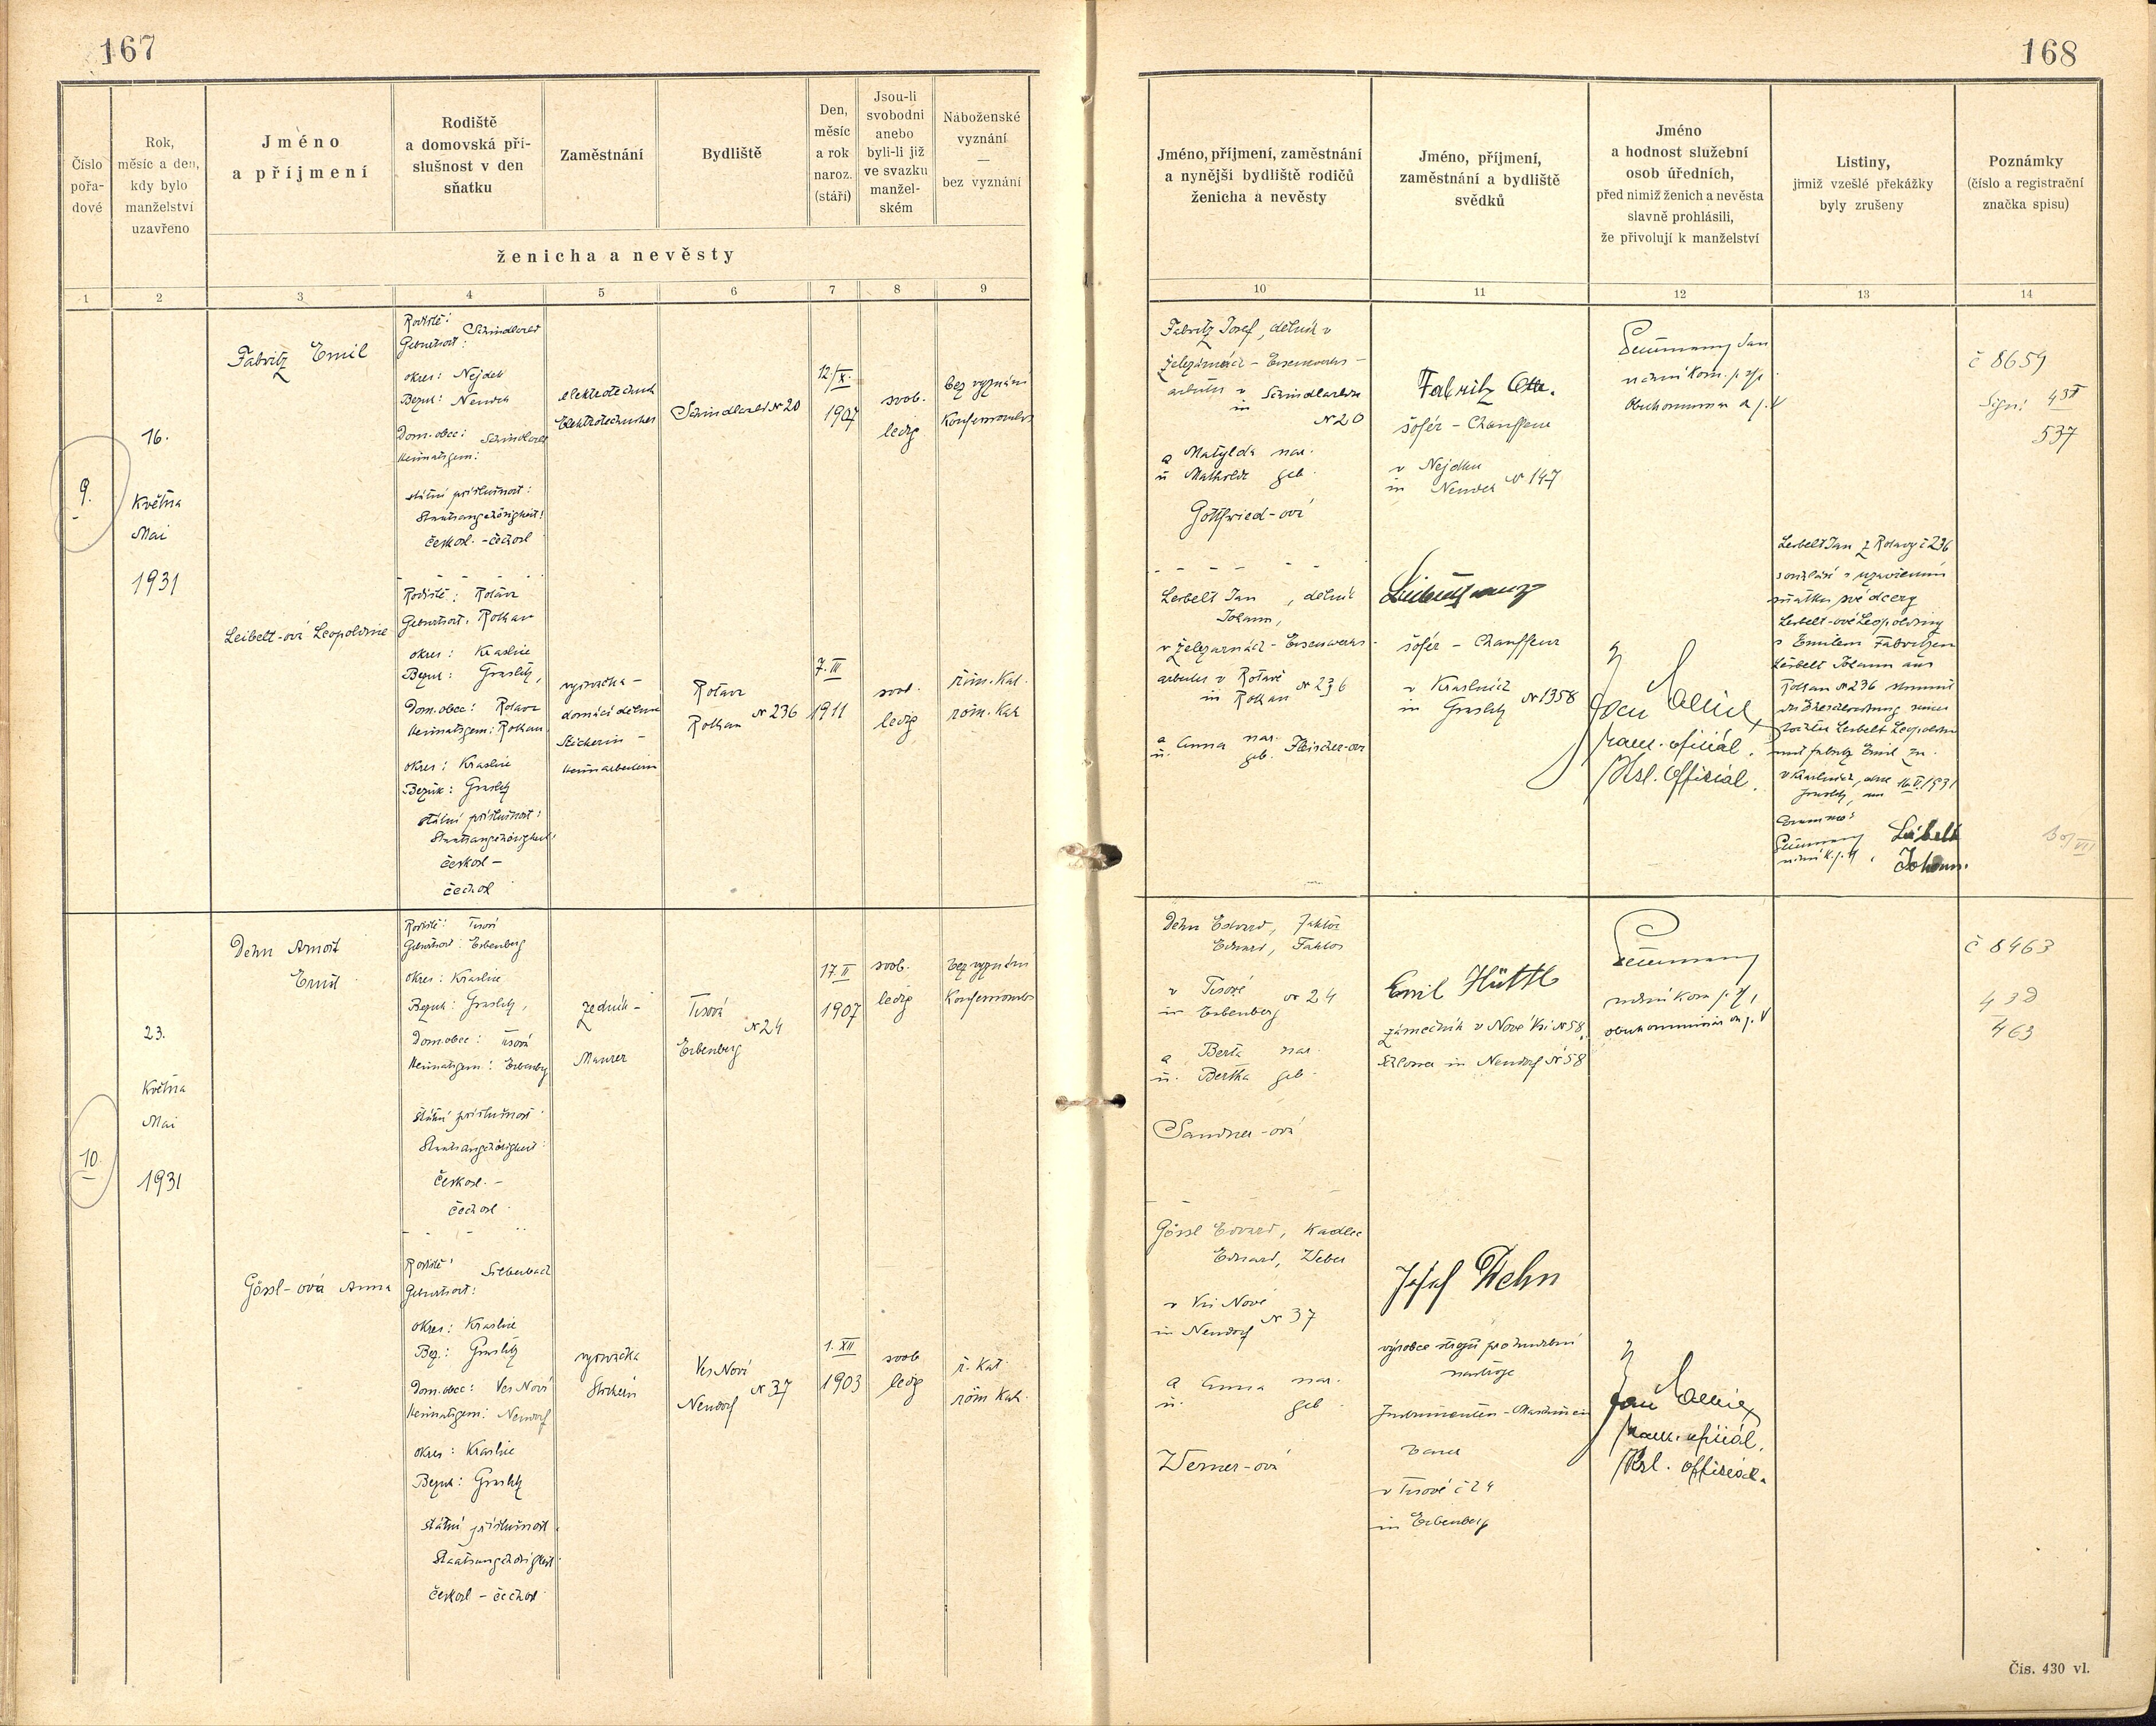 167
168
Číslo
pořa-
dové
Rok,
měsíc a den,
kdy bylo
manželství
uzavřeno
Jméno
a příjmení
Rodiště
a domovská pří-
slušnost v den
sňatku
Zaměstnání
Bydliště
Den,
měsíc
a rok
naroz.
(stáří)
Jsou-li
svobodni
anebo
byli-li již
ve svazku
manžel-
ském
Náboženské
vyznání
—
bez vyznání
ženicha a nevěsty
Jméno, příjmení, zaměstnání
a nynější bydliště rodičů
ženicha a nevěsty
Jméno, příjmení,
zaměstnání a bydliště
svědků
Jméno
a hodnost služební
osob úředních,
před nimiž ženich a nevěsta
slavně prohlásili,
že přivolují k manželství
Listiny,
jimiž vzešlé překážky
byly zrušeny
Poznámky
(číslo a registrační
značka spisu)
1 2 3 4 5 6 7 8 9
10 11 12 13 14
9.
16.
Května
Mai
1931
Fabritz Emil
Rodiště:
Geburtsort:
okres: Nejdek
Bezirk: Neudek
Dom. obec:
Heimatsgem:
státní příslušnost:
Staatsangehörigkeit:
českosl. - čechosl
elektrotechnik
Elektrotechniker
Schindlwald N 20
12./X.
1907
svob.
ledig
bez vyznání
Konfessionslos
Leibelt-ová Leopoldine
Rodiště: Rotava
Geburtsort: Rothau
okres: Kraslice
Bezirk: Graslitz,
Dom. obec: Rotava
Heimatsgem: Rothau
okres: Kraslice
Bezirk: Graslitz
státní příslušnost:
Staatsangehörigkeit:
českosl -
čechosl
vyšívačka -
domácí dělnice
Stickerin -
Heimarbeiterin
Rotava
Rothau N 236
7. III
1911
svob.
ledig
řím. kat.
röm. kat
Fabritz Josef, dělník v
železárnách - Eisenwerks -
arbeiter v
in
N 20
a Matylda nar.
u Mathilde geb.
Gottfried-oví
Leibelt Jan, dělník
Johann,
v železárnách - Eisenwerks -
arbeiter v Rotavě
in Rothau N 236
a Anna nar.
u. geb. Fleischer-ová
Fabritz Otto.
šofér - Chauffeur
v Nejdku
in Neudek N 147
šofér - Chauffeur
v Kraslicích
in Graslitz N 1358
kanc. oficiál.
Kzl. Offizial.
Leibelt Jan z Rotavy č 236
souhlasí s uzavřením
sňatku své dcery
Leibelt-ové Leopoldiny
s Emilem Fabritzem
Leibelt Johann aus
Rothau N 236 stimmt
Leibelt
Johann.
č 8659
537
10.
23.
Května
Mai
1931
Dehn Arnošt
Ernst
Rodiště: Tisová
Geburtsort: Erbenberg
okres: Kraslice
Bezirk: Graslitz,
Dom. obec: Tisová
Heimatsgem: Erbenberg
státní příslušnost:
Staatsangehörigkeit:
českosl. -
čechosl
zedník -
Maurer
Tisová
N 24
Erbenberg
17. II
1907
svob.
ledig
bez vyznání
Konfessionslos
Gössl-ová Anna
Rodiště:
Silberbach
Geburtsort:
okres: Kraslice
Bez.: Graslitz
Dom. obec: Ves Nová
Heimatsgem: Neudorf
okres: Kraslice
Bezirk: Graslitz
státní příslušnost
Staatsangehörigkeit:
českosl - čechosl
vyšívačka
Stickerin
Ves Nová
Neudorf N 37
1. XII
1903
svob
ledig
ř. kat.
röm kat.
Dehn Edvard, faktor
Eduard, Faktor
v Tisové
in Erbenberg N 24
a Berta nar.
u. Bertha geb.
Sandner-ová
Gössl Edvard, tkadlec
Eduard, Weber
v Vsi Nové
in Neudorf N 37
a Anna nar.
u. geb
Werner-ová
Emil Hüttl
zámečník v Nové Vsi N 58,
Schlosser in Neudorf N 58
Josef Dehn
výrobce strojů pro hudební
nástroje
Instrumenten-Maschinen
bauer
v Tisové č 24
in Erbenberg
kanc. oficiál.
Kzl. Offizial.
č 8463
463
Čís. 430 vl.